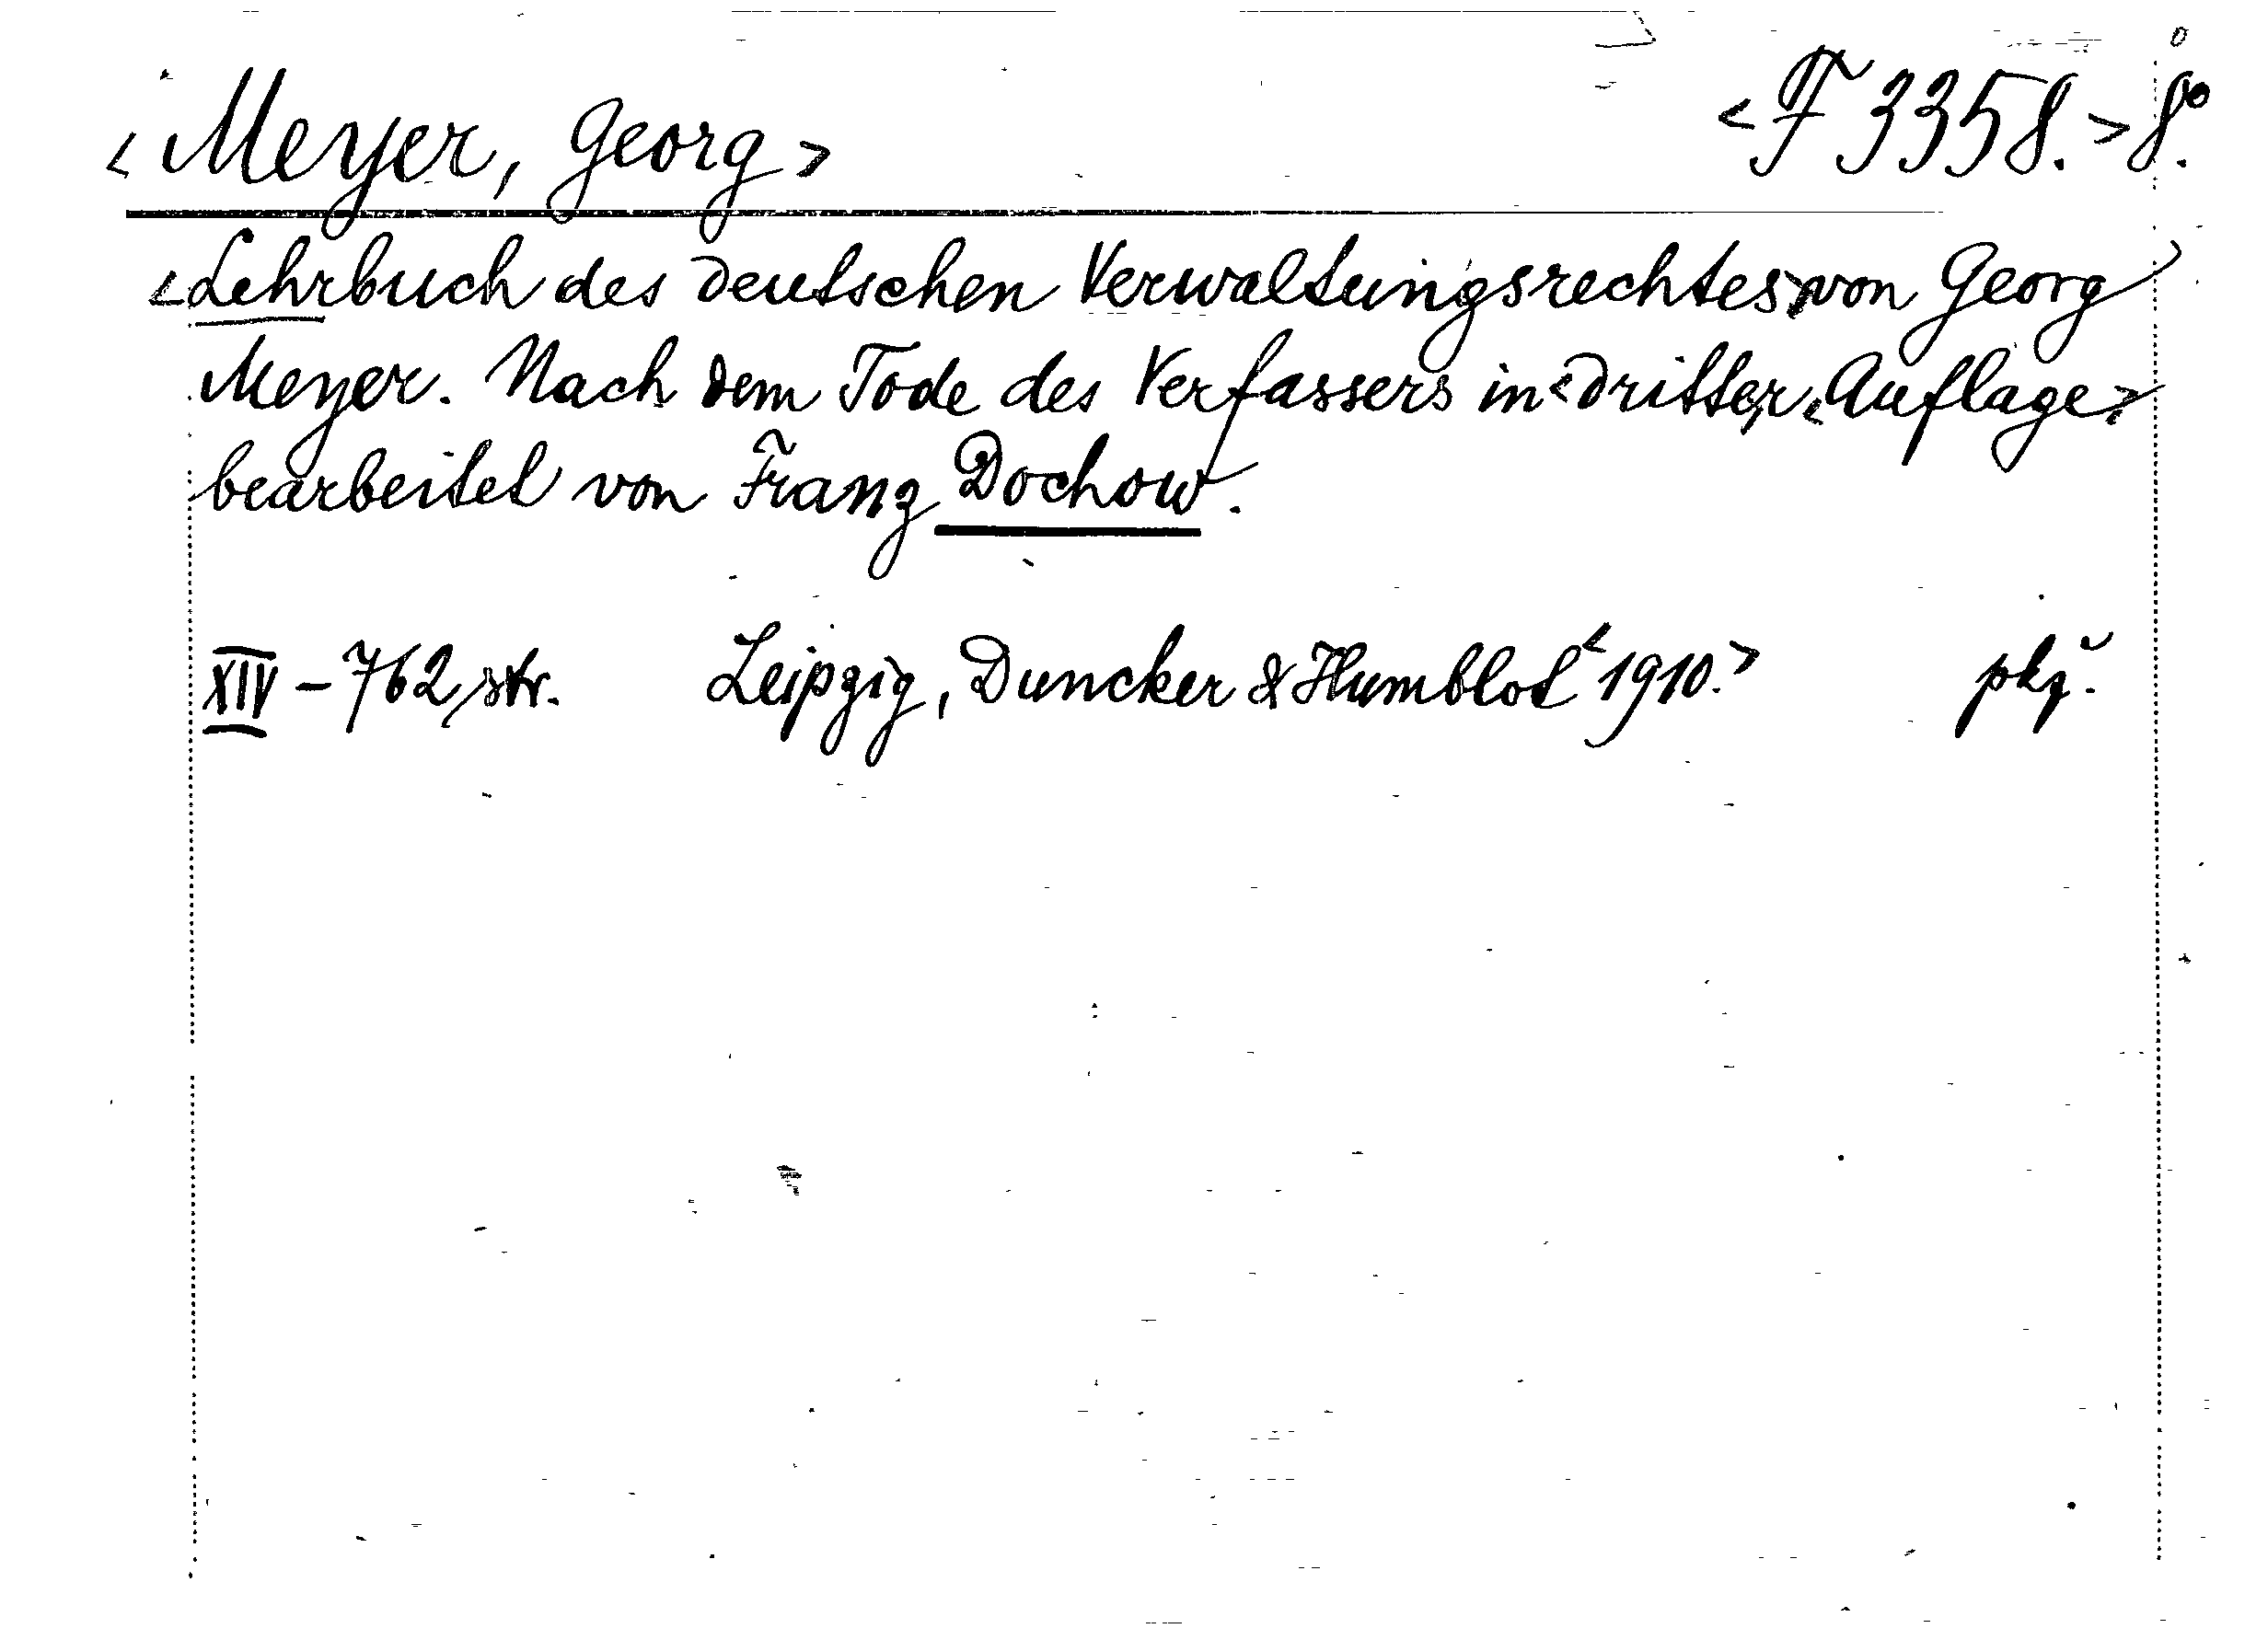 <Meyer, Georg> <F 3358.> 8°.
<Lehrbuch des deutschen Verwaltungsrechtes> von Georg
Meyer. Nach dem Tode des Verfassers in <dritter> <Auflage>
bearbeitet von Franz Dochow.
XIV – 762 str. Leipzig, Duncker & Humblot <1910.>